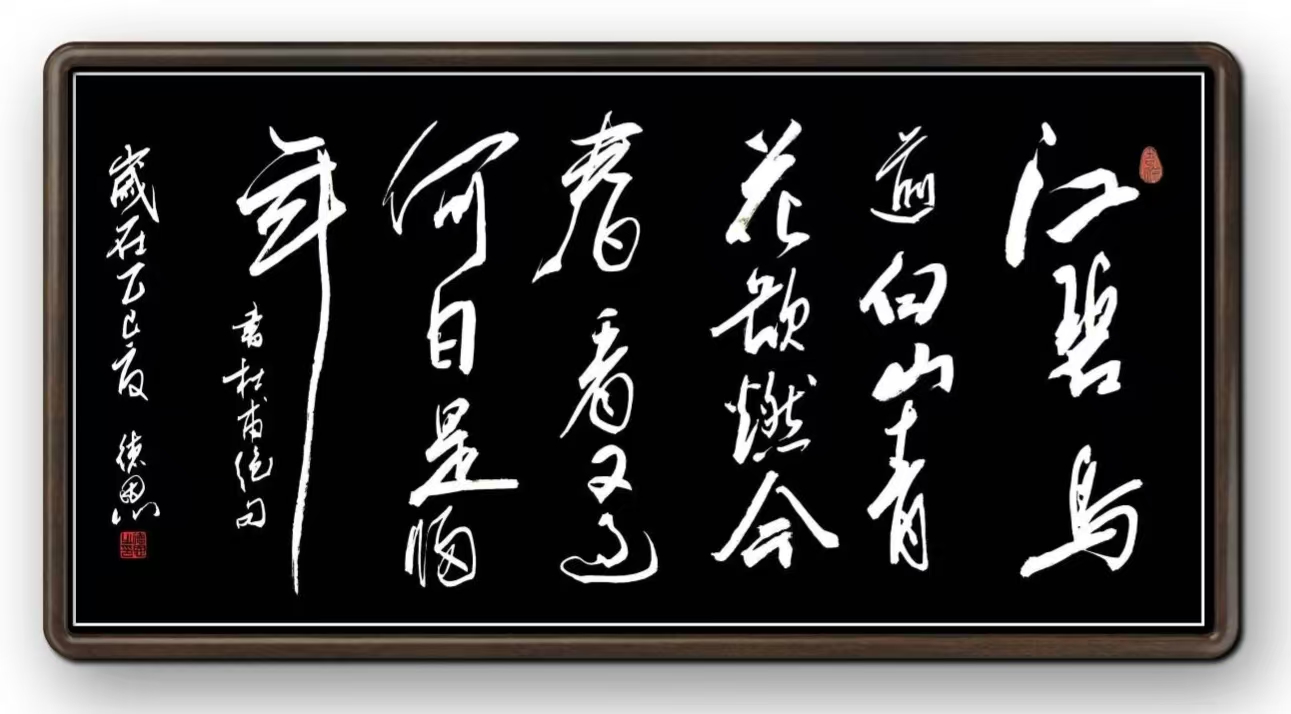 江碧鸟
逾白山青
花欲燃今
春看又过
何日是歸
年
書杜甫绝句
歲在乙巳夏 德